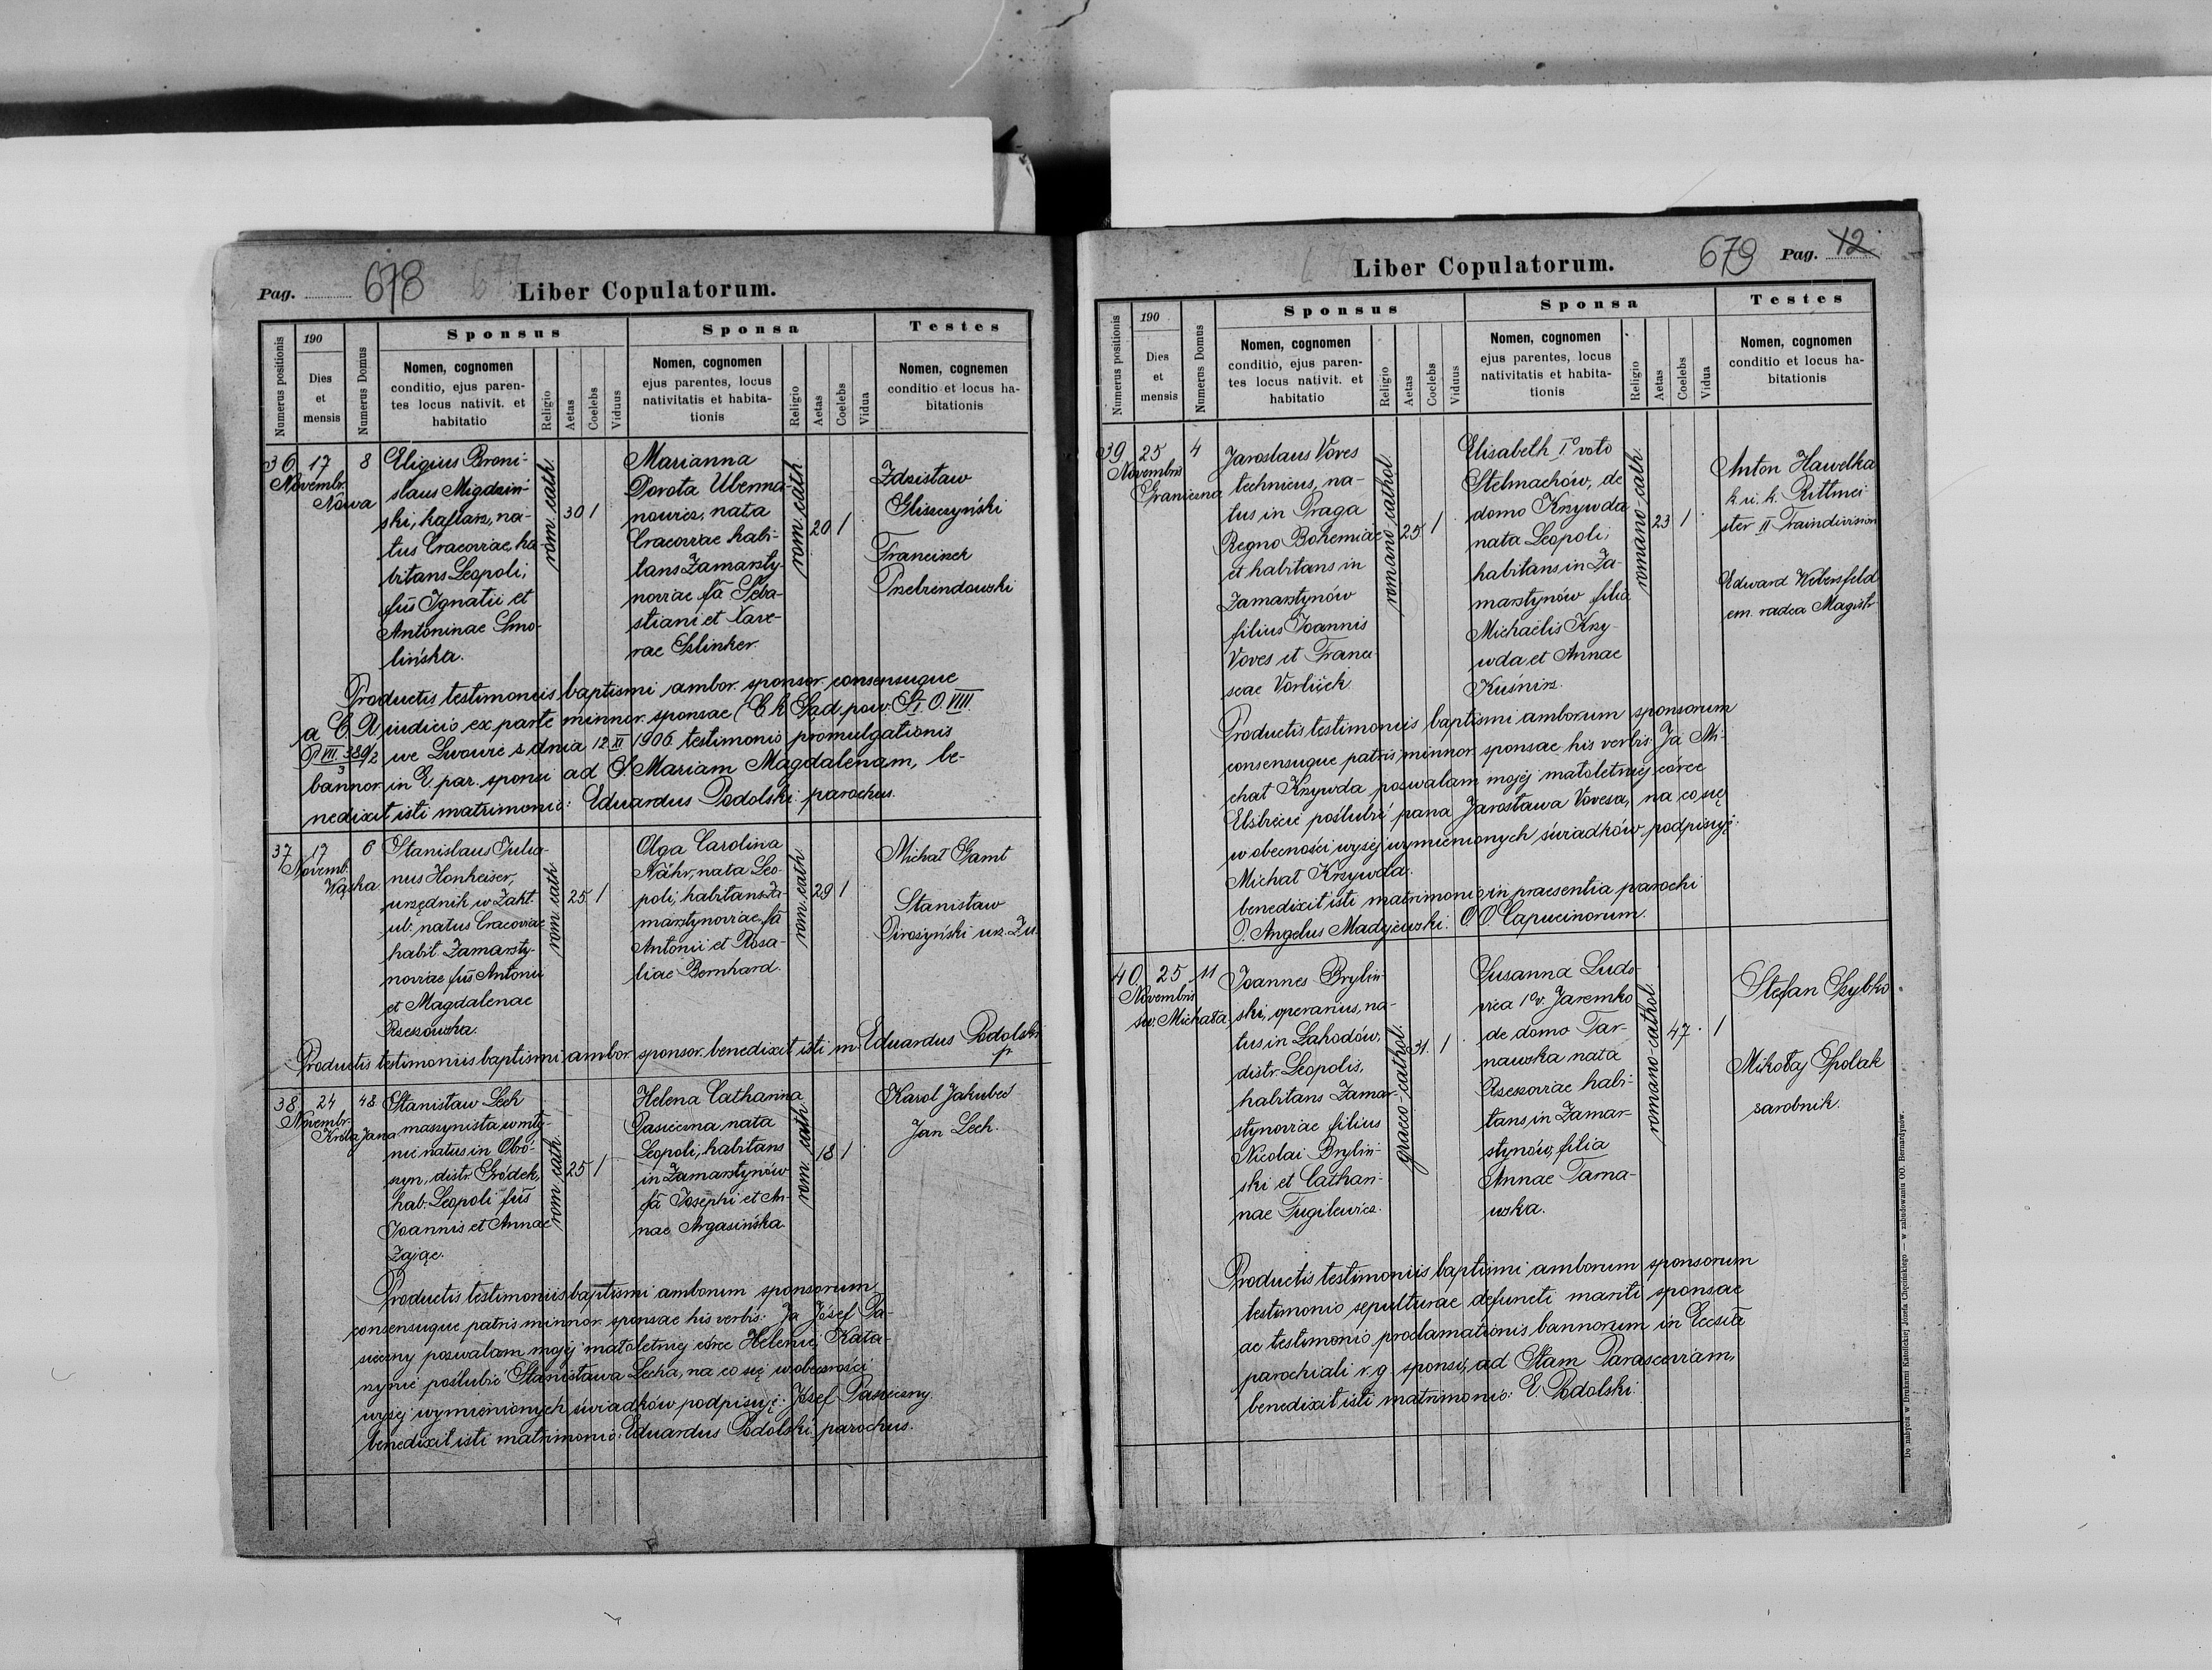 Pag. 678
Liber Copulatorum.
Numerus positionis
190
Dies
et
mensis
Numerus Domus
Sponsus
Nomen, cognomen
conditio, ejus paren-
tes locus nativit. et
habitatio
Religio
Aetas
Coelebs
Viduus
Sponsa
Nomen, cognomen
ejus parentes, locus
nativitatis et habita-
tionis
Religio
Aetas
Coelebs
Vidua
Testes
Nomen, cognemen
conditio et locus ha-
bitationis
36
17
Novembr.
Nowa
8
Eligius Broni-
slaus Migdziń-
ski, kaflarz, na-
tus Cracoviae, ha-
bitans Leopoli,
fius Ignatii et
Antoninae Smo-
lińska.
rom. cath.
30
1
Marianna
Dorota Uberma-
nowicz, nata
Cracoviae habi-
tans Zamarsty-
noviae fa Seba-
stiani et Xave-
rae Eslinker.
rom. cath.
20
1
Zdzisław
Gliszczyński
Franciszek
Przebendowski
Productis testimoniis baptismi ambor. sponsor. consensuque
a C. R. iudicio ex parte minnor. sponsae (C. k. Sąd. pow. S. I. O. VIII.
P VII 389/2 we Lwowie z dnia 12 XI 1906. testimonio promulgationis
3
bannor. in E. par. sponsi ad S. Mariam Magdalenam, be-
nedixit isti matrimonio: Eduardus Podolski parochus.
37
17
Novemb.
Wąska
6
Stanislaus Julia-
nus Honheiser,
urzędnik w Zakł.
ub. natus Cracoviae
habit. Zamarsty-
noviae fius Antonii
et Magdalenae
Rzeszowska.
rom. cath.
25
1
Olga Carolina
Nähr, nata Leo-
poli, habitans Za-
marstynoviae, fa
Antonii et Rosa-
liae Bernhard.
rom. cath.
29
1
Michał Gamt
Stanisław
Piroszyński urz. Zu.
Productis testimoniis baptismi ambor. sponsor. benedixit isti m. Eduardus Podolski
p
38
24
Novembr.
Króla Jana
48
Stanisław Lech
maszynista w mły-
nie natus in Obro-
szyn, distr. Gródek,
hab. Leopoli fius
Joannis et Annae
Zając.
rom. cath.
25
1
Helena Catharina
Pasieczna, nata
Leopoli, habitans
in Zamarstynów
fa Josephi et An-
nae Argasińska.
rom. cath.
18
1
Karol Jakubec
Jan Lech.
Productis testimoniis baptismi amborum sponsorum
consensuque patris minnor. sponsae his verbis: Ja Józef Pa-
sieczny pozwalam mojéj małoletniej córce Helenie Kata-
rzynie poślubić Stanisława Lecha, na co się w obecności
wyżej wymienionych świadków podpisuję: Józef Pasieczny.
benedixit isti matrimonio: Eduardus Podolski parochus.
Liber Copulatorum.
679
Pag. 12
Numerus positionis
190
Dies
et
mensis
Numerus Domus
Sponsus
Nomen, cognomen
conditio, ejus paren-
tes locus nativit. et
habitatio
Religio
Aetas
Coelebs
Viduus
Sponsa
Nomen, cognomen
ejus parentes, locus
nativitatis et habita-
tionis
Religio
Aetas
Coelebs
Vidua
Testes
Nomen, cognomen
conditio et locus ha-
bitationis
39
25
Novembris
Graniczna
4
Jaroslaus Voves
technicus, na-
tus in Praga
Regno Bohemiae
et habitans in
Zamarstynów
filius Joannis
Voves et Franci-
scae Vorlíček.
romano-cathol.
25
1
Elisabeth Iº voto
Stelmachów, de
domo Krzywda
nata Leopoli,
habitans in Za-
marstynów filia
Michaëlis Krzy-
wda et Annae
Kuśnirz.
romano-cath.
23
1
Anton Hawelka
k. u. k. Rittmei-
ster II Traindivision
Edward Webersfeld
em. radca Magistr.
Productis testimoniis baptismi amborum sponsorum
consensuque patris minnor. sponsae his verbis: Ja Mi-
chał Krzywda pozwalam mojéj małoletniéj córce
Elżbiecie poślubić pana Jarosława Vovesa, na co się
w obecności wyżéj wymienionych świadków podpisuję:
Michał Krzywda.
benedixit isti matrimonio in praesentia parochi
P. Angelus Madyjewski. O. O. Capucinorum.
40
25
Novembris
św. Michała
11
Joannes Bryliń-
ski, operarius, na-
tus in Lahodów,
distr. Leopolis,
habitans Zamar-
stynoviae filius
Nicolai Bryliń-
ski et Cathari-
nae Fugilewicz.
graeco-cathol.
31
1
Susanna Ludo-
vica 1º v. Jaremko
de domo Tar-
nawska nata
Rzeszoviae habi-
tans in Zamar-
stynów, filia
Annae Tarna-
wska.
romano-cathol.
47
1
Stefan Szybko
Mikołaj Spolak
zarobnik.
Productis testimoniis baptismi amborum sponsorum
testimonio sepulturae defuncti mariti sponsae
ac testimonio proclamationis bannorum in Eccsia
parochiali r. g. sponsi, ad Stam Parasceviam,
benedixit isti matrimonio: E. Podolski.
Do nabycia w Drukarni Katolickiej Józefa Chęcińskiego — w zabudowaniu OO. Bernardynów.